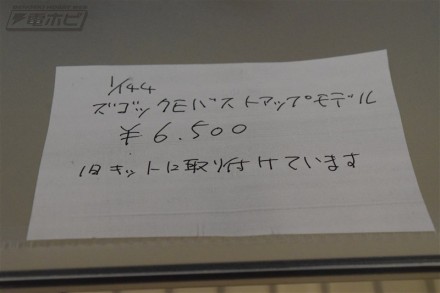 電ホビ
1/144
ズゴックEバストアップモデル
¥6.500
旧キットに取り付けています